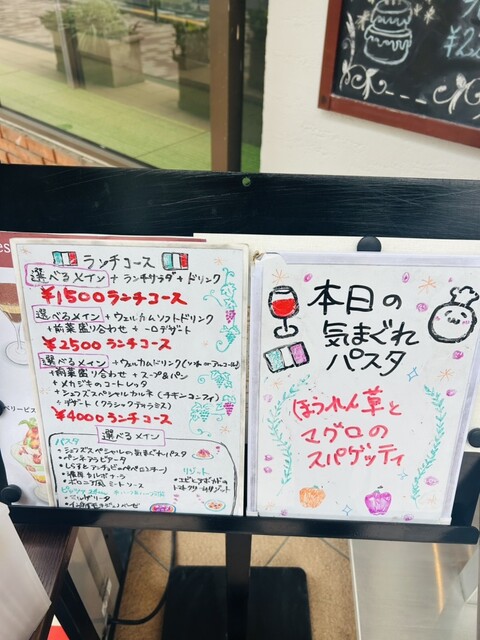 ランチコース
選べるメイン + ランチサラダ + ドリンク
¥1500 ランチコース
選べるメイン + ウェルカムソフトドリンク
+ 前菜盛り合わせ + 一口デザート
¥2500 ランチコース
選べるメイン + ウェルカムドリンク
+ 前菜盛り合わせ + スープ&パン
+ メカジキのコートレッタ
+ シェフズスペシャルカルネ(チキンコンフィ)
+ デザート(クラシックティラミス)
¥4000 ランチコース
選べるメイン
パスタ
・シェフズスペシャルの気まぐれパスタ
・ペンネアラビアータ
・しらすとアンチョビのペペロンチーノ
・濃厚カルボナーラ
・ボロニア風ミートソース
リゾット
・エビとアボカドの
トマトクリームリゾット
・マルゲリータ
本日の
気まぐれ
パスタ
ほうれん草と
マグロの
スパゲッティ